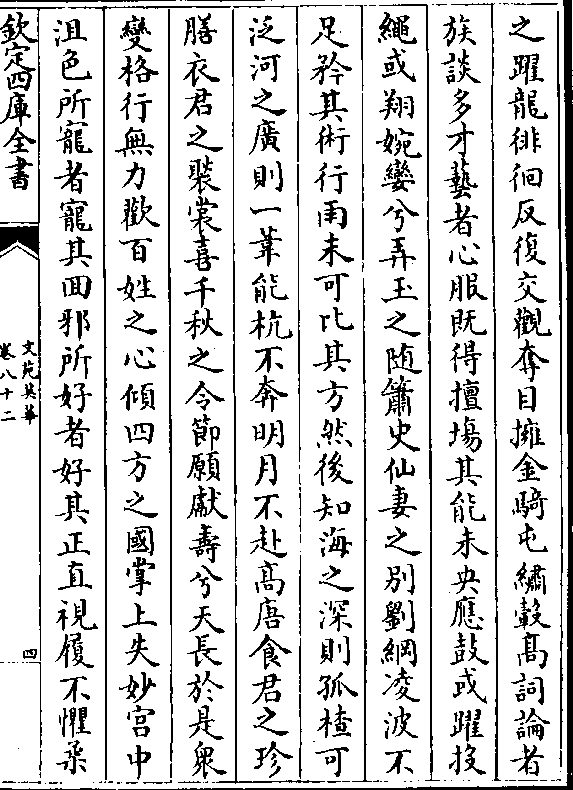 之躍龍徘徊反復交觀奪目擁金騎屯繡轂髙詞論者
族談多才藝者心服既得擅場其能未央應鼓或躍投
繩或翔婉孌兮弄玉之隨簫史仙妻之别劉綱凌波不
足矜其術行雨未可比其方然後知海之深則孤楂可
泛河之廣則一葦能杭不奔明月不赴髙唐食君之珍
膳衣君之䙝裳喜千秋之令節願獻壽兮天長於是衆
變格行無力歡百姓之心傾四方之國掌上失妙宫中
沮色所寵者寵其回邪所好者好其正直視履不懼柔
欽定四庫全書
文苑英華
卷八十二
四